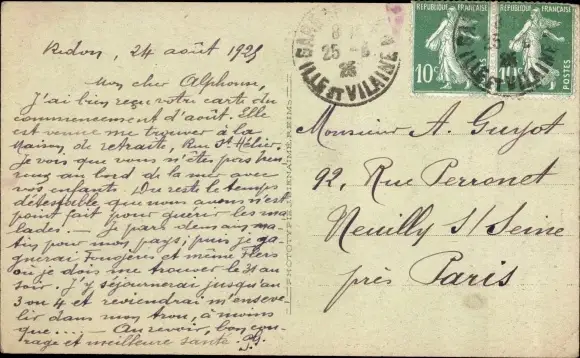 Redon, 24 août 1925
Mon cher Alphonse,
J'ai bien reçu votre carte du
commencement d'août. Elle
est venue me trouver à la
Maison de retraite, Rue St Hélier.
Je vois que vous n'êtes pas heu
reux au bord de la mer avec
vos enfants. Du reste le temps
détestable que nous avons n'est
point fait pour guérir les ma
lades. — Je pars demain ma-
tin pour mon pays, puis je ga-
gnerai Fougères et même Flers
où je dois me trouver le 31 au
soir. J'y séjournerai jusqu'au
3 ou 4 et reviendrai m'enseve-
lir dans mon trou, à moins
que.... — Au revoir, bon cou-
rage et meilleure santé.
PHOTOTYPIE J. THIENAIMÉ, REIMS
25 - 8
25
ILLE ET VILAINE
RÉPUBLIQUE FRANÇAISE
10c
POSTES
RÉPUBLIQUE FRANÇAISE
10c
POSTES
25
ILLE ET VILAINE
Monsieur A. Guyot
92, Rue Perronet
Neuilly S/ Seine
près Paris